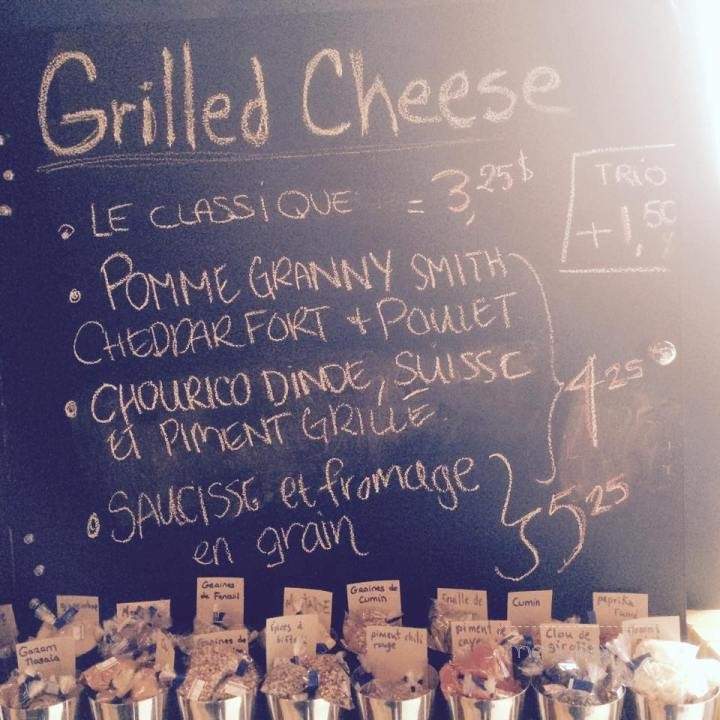 Grilled Cheese
• LE CLASSIQUE = 3,25$
TRIO
+1,50
• POMME GRANNY SMITH
CHEDDAR FORT + POULET
• CHOURICO DINDE, SUISSE
ET PIMENT GRILLÉ
4 25
• SAUCISSE et fromage
en grain
5 25
Graines de Fenouil
Graines de Cumin
Feuille de
Cumin
paprika Fumé
Garam Masala
Épices à
piment chili rouge
piment de
Clou de girofle